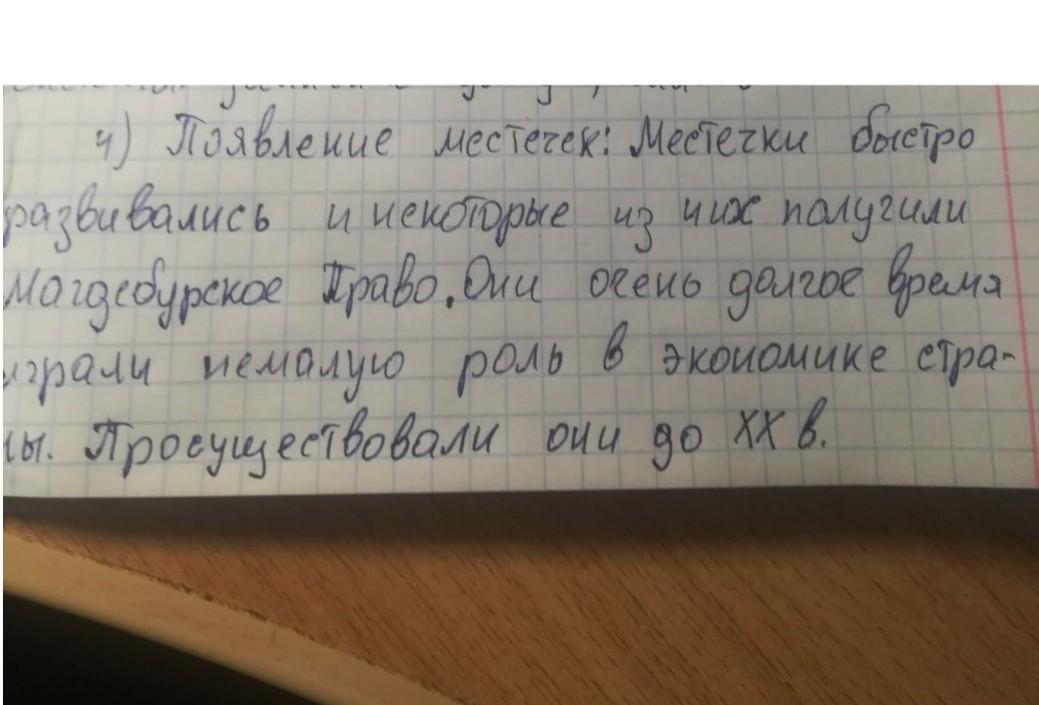 4) Появление местечек: Местечки быстро
развивались и некоторые из них получили
Магдебурское Право. Они очень долгое время
играли немалую роль в экономике стра-
ны. Просуществовали они до XX в.